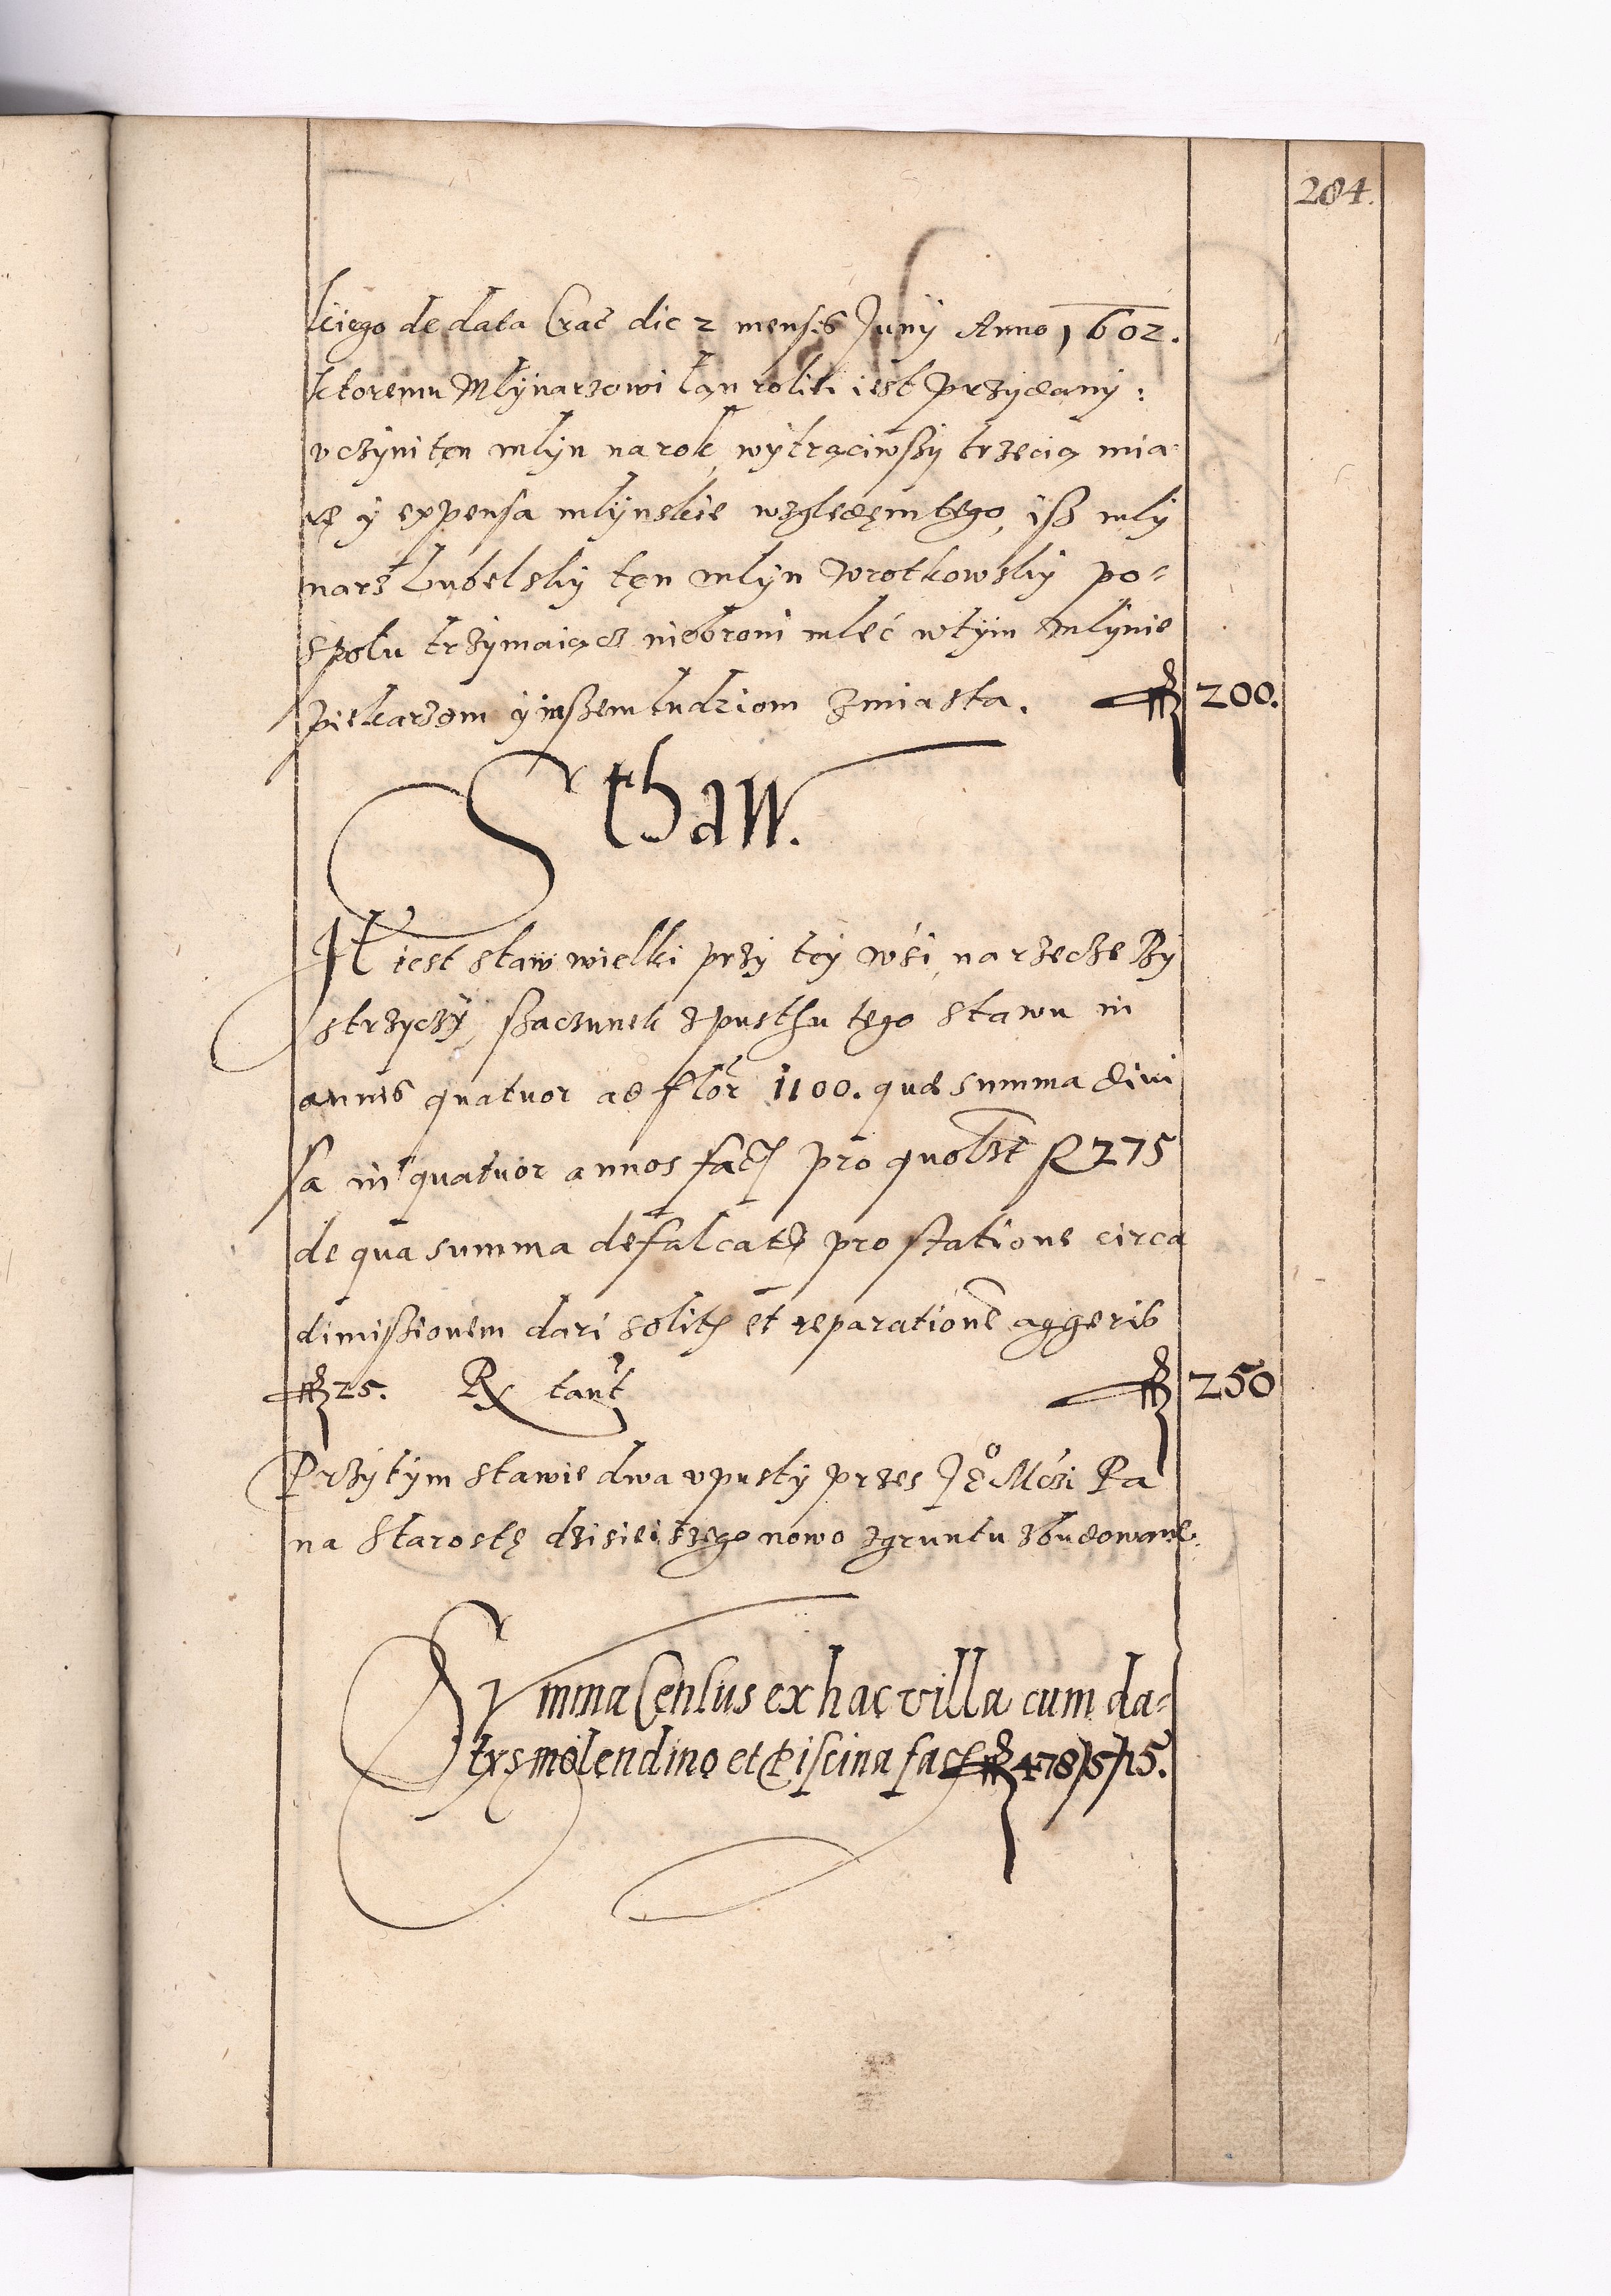 204.
kiego de data Crac̄ die 2 mensis Junÿ Anno 1602.
ktoremu Młÿnarzowi łąn roliei iest przydany:
vczÿni tęn młyn na rok, wÿtrąciwßÿ trzecią mia-
rę ÿ expensa młÿnskie względęm tego, iß mły
narz Lubelskÿ tęn młyn Wrotkowskÿ po-
społu trzymaiącz niebroni mleć w tÿm młynie
piekarzom ÿ inßem ludziom z miasta. 200.
Sthaw.
Jest staw wielki przy teÿ wśi, na rzecze By
strzyczÿ, ßaczunek spusthu tego stawu in
annis quatuor ad flor 1100. quæ summa divi
sa in quatuor annos fact pro quolibt fl 275
de qua summa defalcatis pro statione circa
dimißionem dari solitis et reparatione aggeris
25. Rx tant 250
Przÿ tÿm stawie dwa vpustÿ przes Jᵒ Mćzi Pa
na Starostę dzisieiszego nowo z gruntu zbudowane.
Summa Census ex hac villa cum da-
tÿs molendino et Piscina facit 478/5/15.